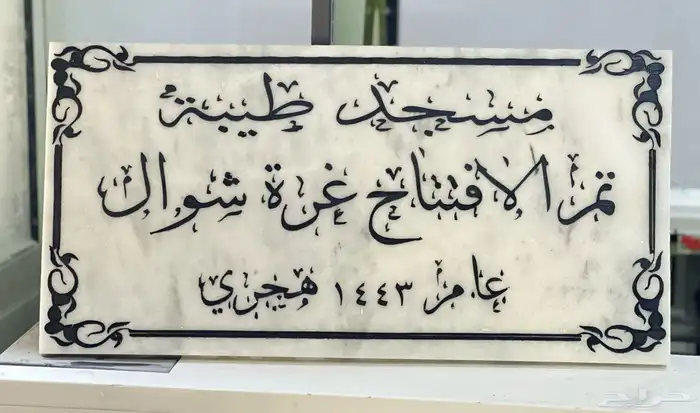 مسجد طيبة
تم الافتتاح غرة شوال
عام ١٤٤٣ هجري
حراج